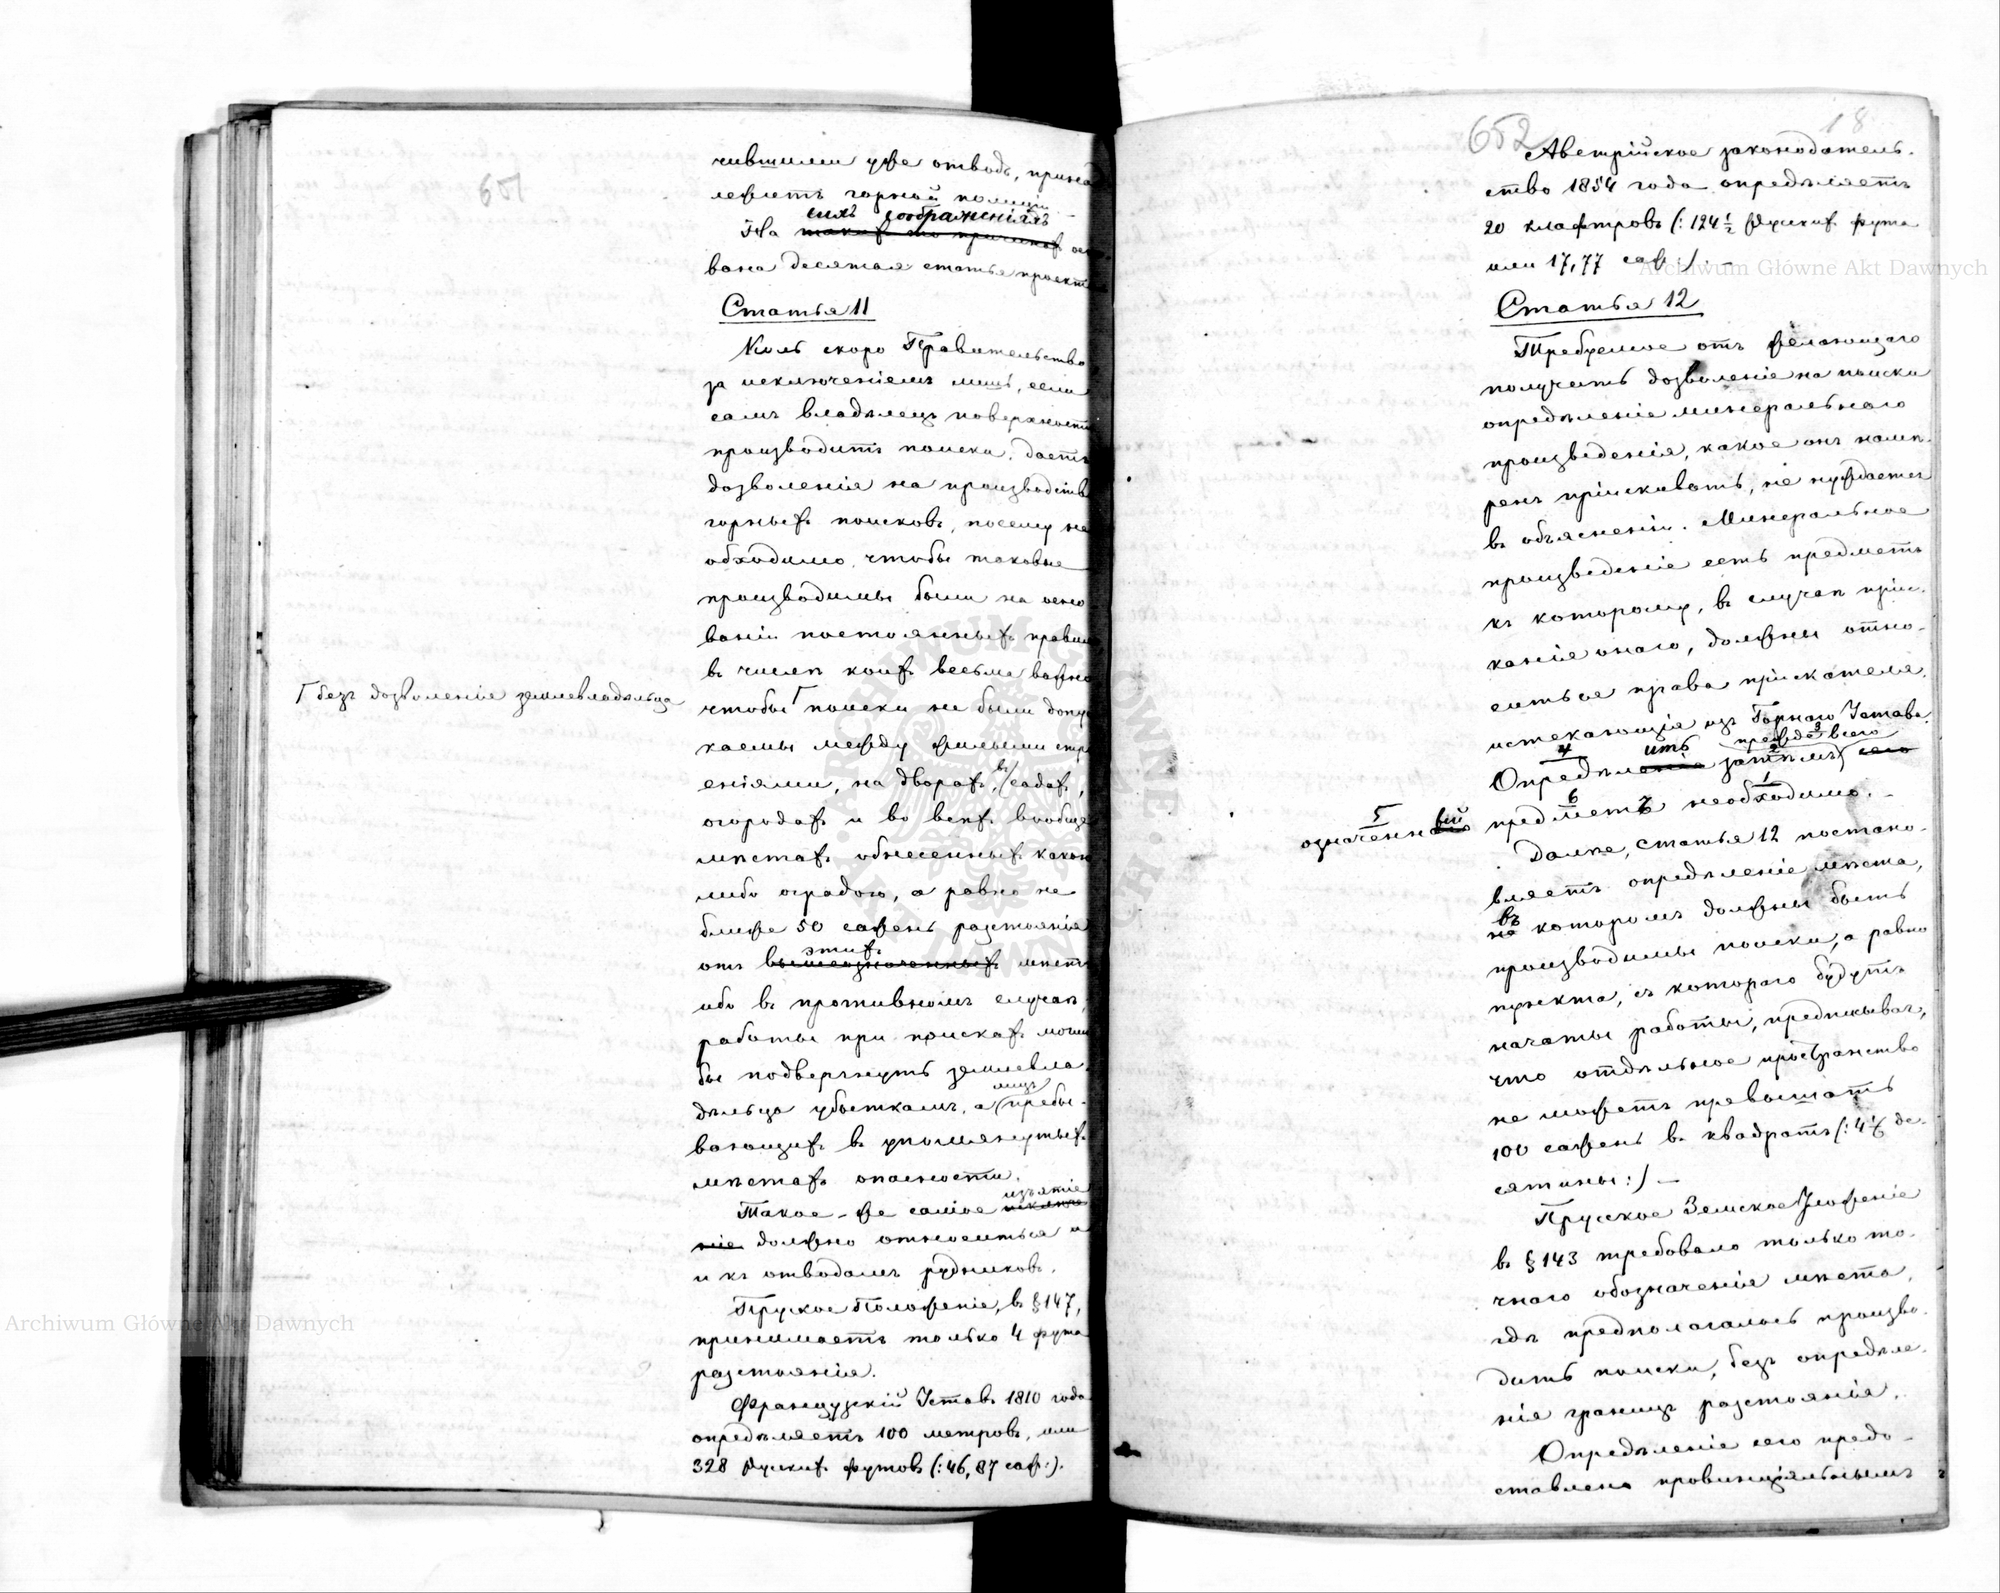 651
чившими уже отводъ, принад
лежитъ горной полиціи
сихъ соображеніяхъ
На таких-то причинах ос
вана десятая статья проект
Статья 11
Коль скоро Правительство
за исключеніемъ лишь, если
самъ владѣлецъ поверхности
производитъ поиски, даетъ
дозволенія на производств
горныхъ поисковъ, посему не
обходимо, чтобы таковые
производимы были на осно
ваніи постоянныхъ правил
въ числѣ коихъ весьма важно
Г безъ дозволенія землевладѣльца
чтобы Г поиски не были допус
каемы между жилыми стро
еніями, на дворахъ, въ садахъ,
огородахъ и во всѣхъ вообще
мѣстахъ обнесенныхъ какою
либо оградою, а равно не
ближе 50 сажень разстоянія
этихъ
отъ вышеозначенныхъ мѣстъ
ибо въ противномъ случаѣ,
работы при поискахъ могли
бы подвергнуть землевла-
лицъ
дѣльца убыткамъ, а пребы-
вающихъ въ упомянутыхъ
мѣстахъ опасности.
изъятіе
Такое-же самое исключе
ніе должно относиться и
и къ отводамъ рудниковъ.
Пруское Положеніе, въ §147,
принимаетъ только 4 фута
разстоянія.
Французскій Уставъ 1810 года
опредѣляетъ 100 метровъ, или
328 Рускихъ футовъ (:46,87 саж:).
652
18
Австрійское законодатель-
ство 1854 года опредѣляетъ
20 клафтровъ (:124 1/2 Рускихъ фута
или 17,77 саж:).—
Статья 12
Требуемое отъ желающаго
получить дозволеніе на поиски
опредѣленіе минеральнаго
произведенія, какое онъ намѣ-
ренъ пріискивать, не нуждается
въ объясненіи. Минеральное
произведеніе есть предметъ
къ которому, въ случаѣ пріис-
канія онаго, должны отно-
ситься права пріискателя,
истекающія изъ Горнаго Устава.
4 ить 2 прежде 3 всего
Опредѣленіе затѣмъ сего
5 6 1
означеннаго вый предметъ необходимо.—
Далѣе, статья 12 постано-
вляетъ опредѣленіе мѣста,
въ
на которомъ должны быть
производимы поиски, а равно
пункта, съ котораго будутъ
начаты работы, предписывая,
что отдѣльное пространство
не можетъ превышать
100 сажень въ квадратѣ (:4 1/6 де-
сятины:)—
Прусское Земское Уложеніе
въ §143 требовало только то-
чнаго обозначенія мѣста,
гдѣ предполагалось произво-
дить поиски, безъ опредѣле-
нія границъ разстоянія.
Опредѣленіе сего предо-
ставлено провинціяльнымъ
Archiwum Główne Akt Dawnych
Archiwum Główne Akt Dawnych
ARCHIWUM GŁÓWNE AKT DAWNYCH